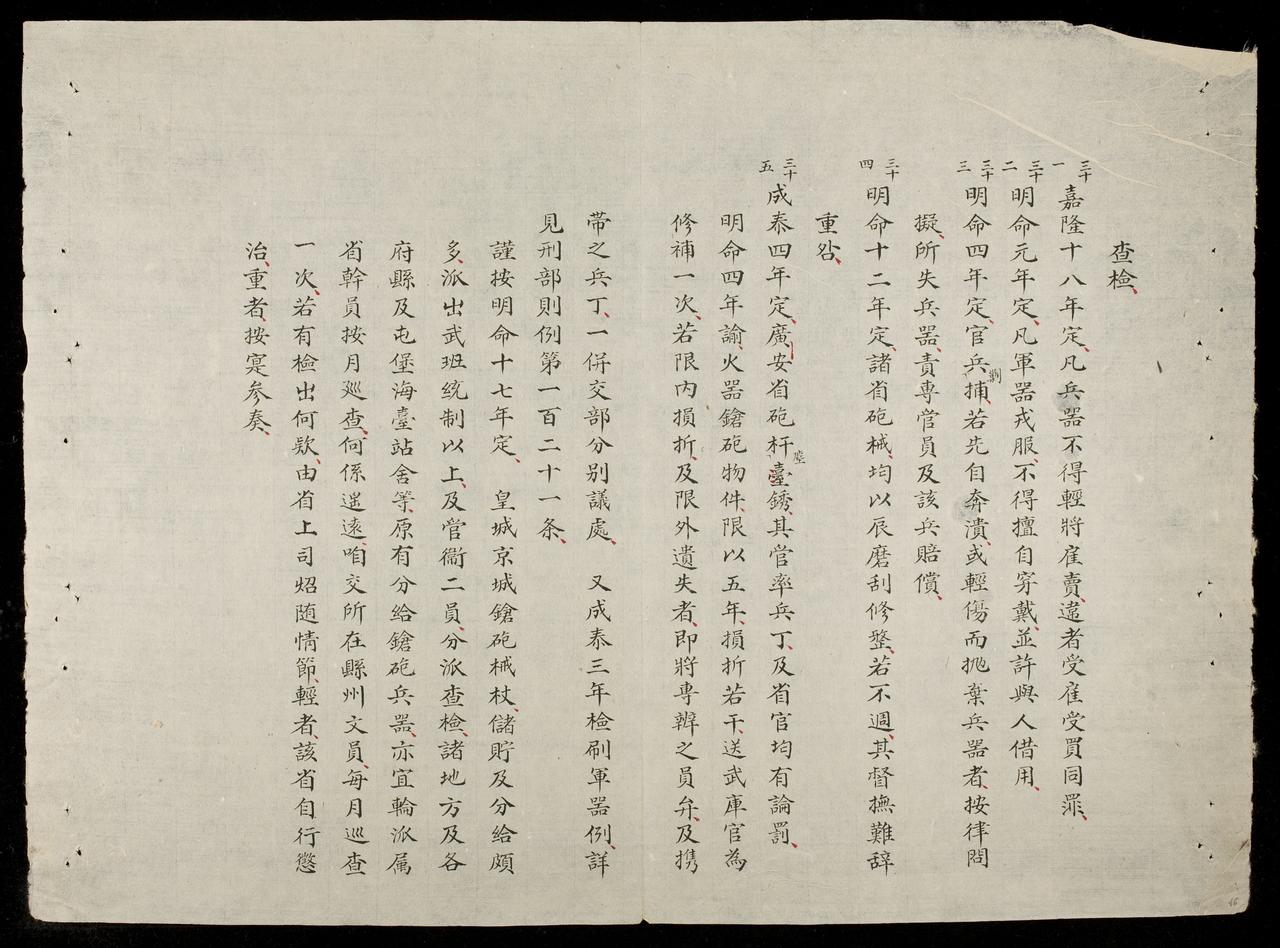 查檢、
三十一 嘉隆十八年定、凡兵器不得輕將雇賣、違者受雇受買同罪、
三十二 明命元年定、凡軍器戎服、不得擅自穿戴、並許與人借用、
三十三 明命四年定、官兵剿捕、若先自奔潰、或輕傷而拋棄兵器者、按律問
擬、所失兵器、責專管員及該兵賠償、
三十四 明命十二年定、諸省砲械、均以辰磨刮修整、若不週、其督撫難辞
重咎、
三十五 成泰四年定、廣安省砲杆塵銹、其管率兵丁、及省官均有論罰、
明命四年諭、火器鎗砲物件、限以五年、損折若干、送武庫官為
修補一次、若限内損折、及限外遺失者、即將專辨之員弁、及携
帶之兵丁、一併交部分别議處、 又成泰三年檢刷軍器例、詳
見刑部則例第一百二十一条、
謹按明命十七年定、 皇城京城鎗砲械杖、儲貯及分給頗
多、派出武班統制以上、及管衞二員、分派查檢、諸地方及各
府縣及屯堡海臺站舍等、原有分給鎗砲兵器、亦宜輪派属
省幹員按月廵查、何係遥遠、咱交所在縣州文員、每月巡查
一次、若有檢出何欵、由省上司炤随情節、輕者、該省自行懲
治、重者、按寔参奏、
46